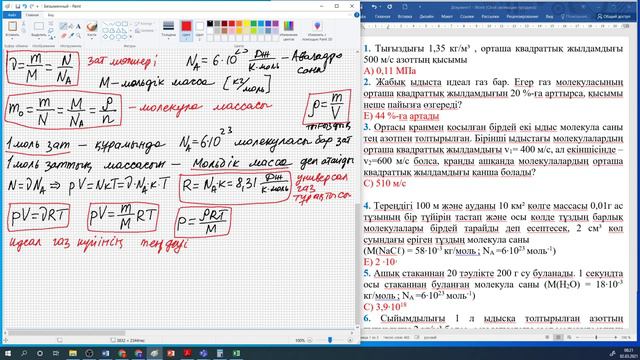 Безымянный - Paint
ν = m/M = N/N_A зат мөлшері N_A = 6·10²³ Дж/К·моль - Авагадро саны
M - мольдік масса [кг/моль]
m₀ = m/N = M/N_A = ρ/n - молекула массасы
ρ = m/V
тығыздық
1 моль зат - құрамында N_A = 6·10²³ молекуласы бар зат
1 моль заттың массасын - Мольдік масса деп атайды
N = νN_A ⇒ pV = NkT = ν·N_A·k·T R = N_A·k = 8,31 Дж/К·моль универсал газ тұрақтысы
pV = νRT pV = m/M RT p = ρRT/M
идеал газ күйінің теңдеуі
1. Тығыздығы 1,35 кг/м³ , орташа квадраттық жылдамдығы 500 м/с азоттың қысымы
A) 0,11 МПа
2. Жабық ыдыста идеал газ бар. Егер газ молекуласының орташа квадраттық жылдамдығын 20 %-ға арттырса, қысымы неше пайызға өзгереді?
E) 44 %-ға артады
3. Ортасы кранмен қосылған бірдей екі ыдыс молекула саны тең азотпен толтырылған. Бірінші ыдыстағы молекулалардың орташа квадраттық жылдамдығы v₁= 400 м/с, ал екіншісінде – v₂=600 м/с болса, кранды ашқанда молекулалардың орташа квадраттық жылдамдығы қанша болады?
C) 510 м/с
4. Тереңдігі 100 м және ауданы 10 км² көлге массасы 0,01г ас тұзының бір түйірін тастап және осы көлде тұздың барлық молекулалары бірдей тарайды деп есептесек, 2 см³ көл суындағы еріген тұздың молекула саны
(М(NaCℓ) = 58·10⁻³ кг/моль ; N_A =6·10²³ моль⁻¹)
E) 2 ·10⁷
5. Ашық стаканнан 20 тәулікте 200 г су буланады. 1 секундта осы стаканнан буланған молекула саны (М(Н2О) = 18·10⁻³ кг/моль ; N_A =6·10²³ моль⁻¹)
C) 3,9·10¹⁸
6. Сыйымдылығы 1 л ыдысқа толтырылған азоттың